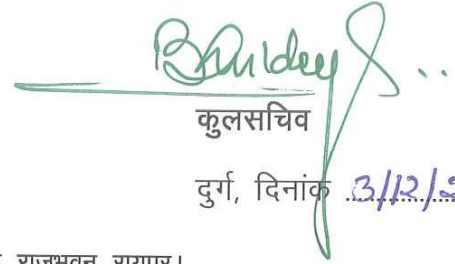 कुलसचिव
दुर्ग, दिनांक 3/12/2
राजभवन, रायपुर।